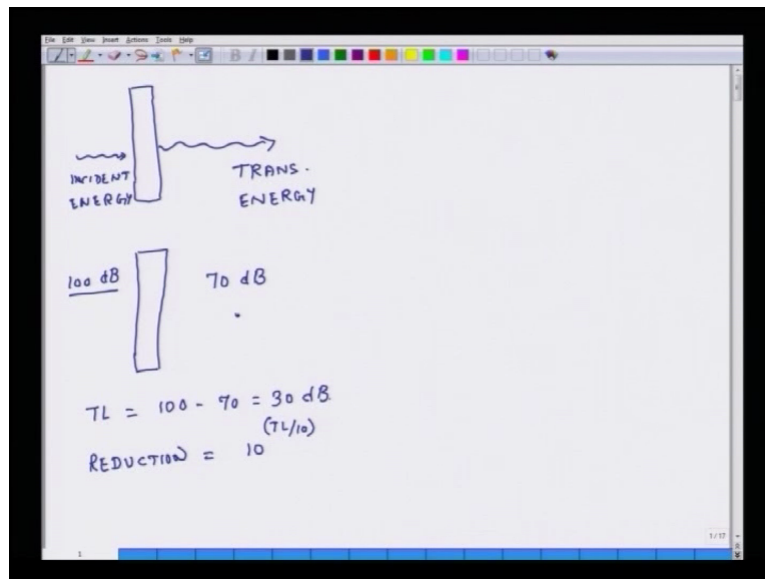 File Edit View Insert Actions Tools Help
INCIDENT
ENERGY
TRANS.
ENERGY
100 dB
70 dB
TL = 100 - 70 = 30 dB
(TL/10)
REDUCTION = 10
1/17
1